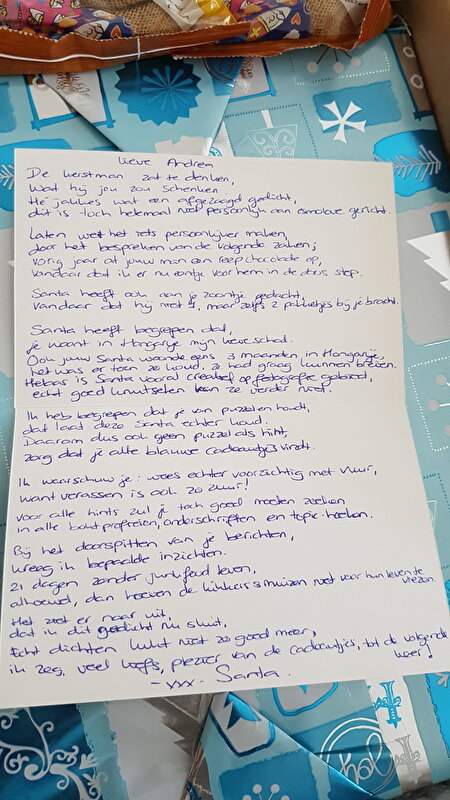 Lieve Andrea
De kerstman zat te denken,
Wat hij jou zou schenken.
Hé jakkes wat een afgezaagd gedicht,
dit is toch helemaal niet persoonlijk aan gericht.
Laten we het iets persoonlijker maken,
door het bespreken van de volgende zaken;
Vorig jaar at jouw man een reep chocolade op,
Vandaar dat ik er nu eentje voor hem in de doos stop.
Santa heeft ook aan je zoontje gedacht,
Vandaar dat hij niet 1, maar zelfs 2 pakketjes bij je bracht.
Santa heeft begrepen dat,
je woont in Hongarije mijn lieve schat.
Ook jouw Santa woonde eens 3 maanden in Hongarije,
het was er toen zo koud, ze had graag kunnen breien.
Helaas is Santa vooral creatief op fotografie gebied,
echt goed knutselen kan ze verder niet.
Ik heb begrepen dat je van puzzelen houdt,
dat laat deze Santa echter koud.
Daarom dus ook geen puzzel als hint,
zorg dat je alle blauwe cadeautjes vindt.
Ik waarschuw je: wees echter voorzichtig met vuur,
want verassen is ook zo zuur!
Voor alle hints zul je toch goed moeten zoeken
in alle profielen, onderschriften en topic-hoeken.
Bij het doorspitten van je berichten,
kreeg ik bepaalde inzichten.
21 dagen zonder junkfood leven,
alhoewel, dan hoeven de kikkers & muizen niet voor hun leven te vrezen.
Het ziet er naar uit,
dat ik dit gedicht nu sluit,
Echt dichten lukt niet zo goed meer,
ik zeg, veel liefs, plezier van de cadeautjes, tot de volgende keer!
-xxx- Santa.